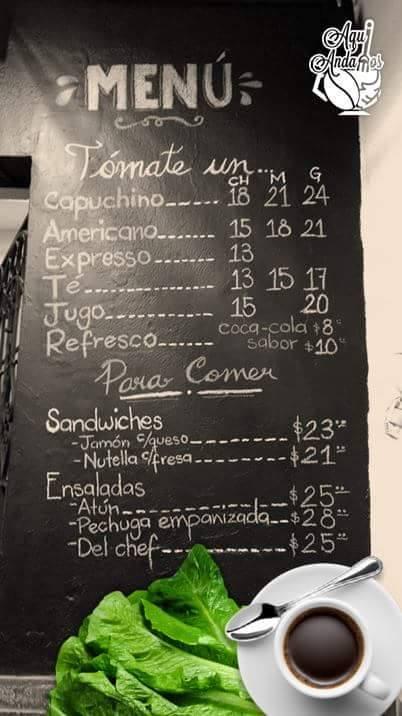 Aquí
Andamos
MENÚ
Tómate un...
CH M G
Capuchino 18 21 24
Americano 15 18 21
Expresso 13
Té 13 15 17
Jugo 15 20
Refresco coca-cola $8
sabor $10
Para Comer
Sandwiches
-Jamón c/queso $23
-Nutella c/fresa $21
Ensaladas
-Atún $25
-Pechuga empanizada $28
-Del chef $25